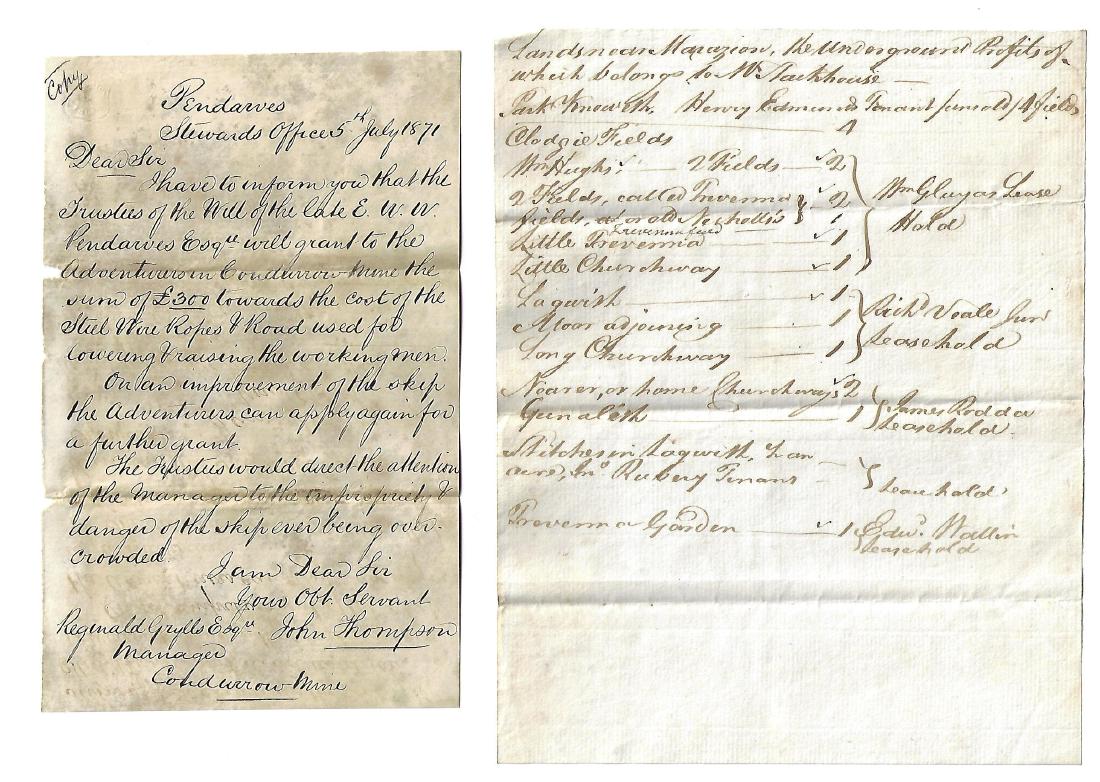 Copy
Pendarves
Stewards Office 5th July 1871
Dear Sir
I have to inform you that the
Trustees of the Will of the late E. W. W.
Pendarves Esqre will grant to the
Adventurers in Condurrow Mine the
sum of £300 towards the cost of the
Steel Wire Ropes & Road used for
lowering & raising the working men.
On an improvement of the skip
the Adventurers can apply again for
a further grant.
The Trustees would direct the attention
of the Manager to the impropriety &
danger of the skip ever being over-
crowded.
I am Dear Sir
Your Obt. Servant
Reginald Grylls Esqre John Thompson
Manager
Condurrow Mine
Lands near Marazion, the Underground Profits of
which belongs to Mr Stackhouse —
Park Knoweth, Henry Edmunds Tenant (unsold) 4 fields
4
Clodgie Fields
Wm Hughs — 2 Fields — 2
2 Fields, called Trevenna — 2
fields, or old Nicholls's 1
Little Trevenna — 1
Little Churchway — 1
Wm Gluyas Lease
Hold
Lagwish — 1
Moor adjoining — 1
Long Churchway — 1
Richd Veale Junr
Leasehold
Nearer, or home Churchways 2
Gunaleth — 1
James Rodda
Leasehold
Stitches in Lagwish, ½ an
acre, Jno Rubery Tenant
Leasehold
Trevenna Garden — 1
Edwd. Wallin
Leasehold